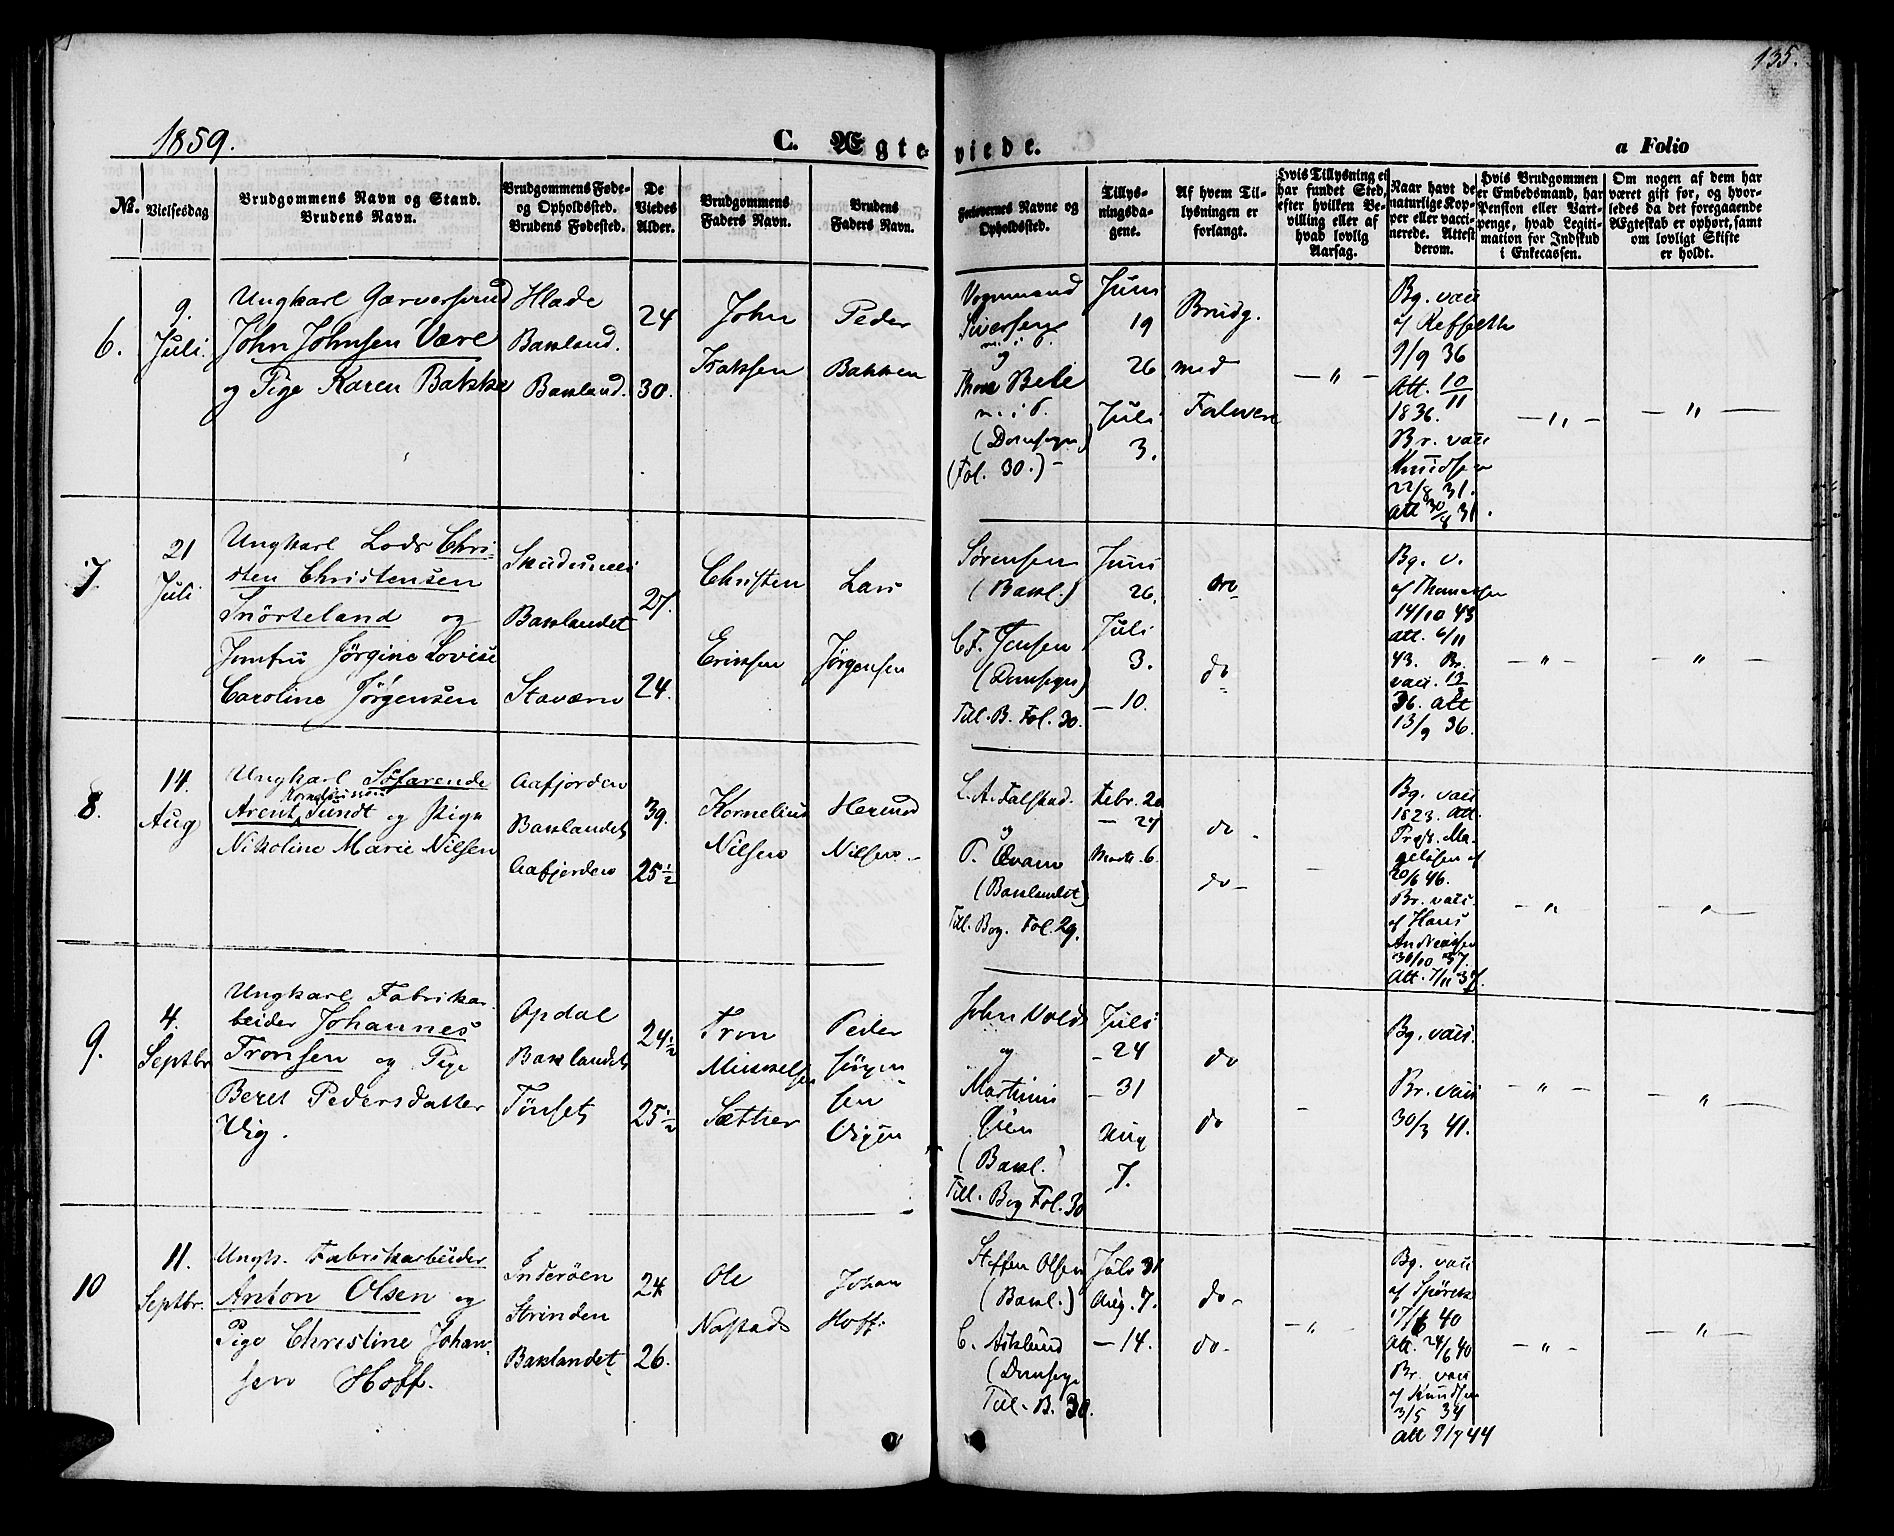 135.
1859.
C. Ægteviede.
a Folio
No.
Vielsesdag
Brudgommens Navn og Stand.
Brudens Navn.
Brudgommens Føde-
og Opholdssted.
Brudens Fødested.
De
Viedes
Alder.
Brudgommens
Faders Navn.
Brudens
Faders Navn.
Forlovernes Navne og
Opholdssted.
Tillys-
ningsda-
gene.
Af hvem Til-
lysningen er
forlangt.
Hvis Tillysning ei
har fundet Sted,
efter hvilken Be-
villing eller af
hvad lovlig
Aarsag.
Naar havt de
naturlige Kop-
per eller vacci-
nerede. Attest
derom.
Hvis Brudgommen
er Embedsmand, har
Pension eller Vart-
penge, hvad Legiti-
mation for Indskud
i Enkecassen.
Om nogen af dem har
været gift før, og hvor-
ledes da det foregaaende
Ægteskab er ophørt, samt
om lovligt Skifte
er holdt.
6.
9.
Juli.
Ungkarl Garversvend
John Johnsen Være
og Pige Karen Bakke
Hlade
Bakland.
Bakland.
24
30.
John
Isaksen
Peder
Bakken
Vognmand
Siversen
og
Beke
(Domsogn)
(Fol. 30.)
Juni
19
26
Juli
3.
Brudg.
med
— " —
Bg. vacc
af
9/9 36
Att. 10/11
1836.
Br. vacc
Knudsen
22/8 31.
Att 30/8 31.
— " —
— " —
7.
21
Juli
Ungkarl Lods Chri-
sten Christensen
Snörteland og
Jomfru Jörgine Lovise
Caroline Jörgensen
Skudesnees
Baklandet
Staværn
27.
24.
Christen
Eriksen
Lars
Jørgensen
Sørensen
(Bakl.)
C. F. Jensen
(Domsogn)
Till. B. Fol. 30.
Juni
26.
Juli
3.
— 10.
do
do
Bg. v.
af Thomassen
14/10 43
att. 6/11
43. Br.
vacc. 13/9
36. att
13/9 36.
— " —
— " —
8.
14.
Aug
Ungkarl Söfarende
Korneliussen
Arent Sundt og Pige
Nikoline Marie Nilsen
Aafjorden
Baklandet
Aafjorden
39.
25 1/2
Kornelius
Nilsen
Nilsen.
L. A. Falstad.
og
(Baklandet)
Till. Bog. Fol. 29.
Febr. 20
— 27
Marts. 6.
do
do —
Bg. vacc
1823. Att.
20/6 46.
Br. vacc.
af Hans
Andreassen
30/10 37.
Att. 7/11 37.
— " —
— " —
9.
4.
Septbr
Ungkarl Fabrikar-
beider Johannes
Tronsen og Pige
Beret Pedersdatter
Vig.
Opdal
Baklandet
Tönset
24 1/2
25 1/2
Tron
Mikkelsen
Sætther
Peder
Jørgen-
sen
Vigen
John Vold
og
Martinus
Öien
(Bakl.)
Till. Bog Fol. 30
Juli
— 24
— 31
Aug
7.
do
do
Bg. vacc.
Br. vacc
30/3 41.
— " —
— " —
10
11.
Septbr.
Ungk. Fabrikarbeider
Anton Olsen og
Pige Christine Johan-
sen Hoff.
Inderöen
Strinden
Baklandet
24
26.
Ole
Nastads
Johan
Hoff.
Steffen Olsen
(Bakl.)
C. Asklund
(Domsogn
Till. B. 30.
Juli 31
Aug. 7.
— 14.
do —
do.
— " —
Bg. vacc
af
17/6 40
Att. 24/6 40
Br. vacc
af Knudsen
3/5 34
Att 9/7 44
— " —
— " —